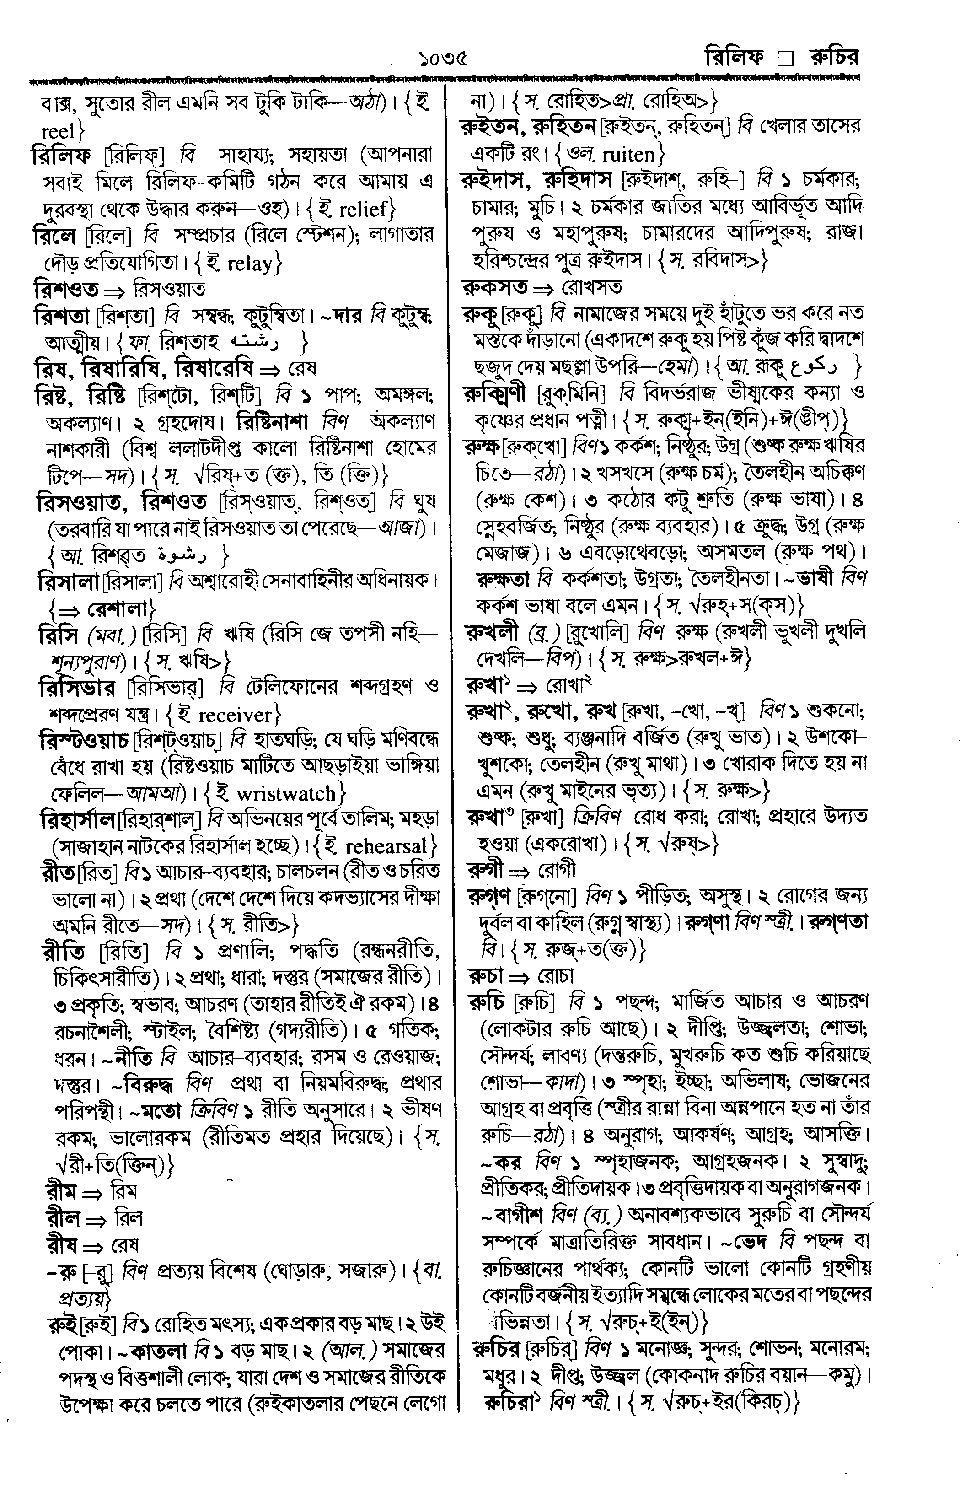 ১০৩৫
রিলিফ □ রুচির
বাক্স, সুতোর রীল এমনি সব টুকি টাকি—অঠা)। {ই.
reel}
রিলিফ [রিলিফ্] বি সাহায্য; সহায়তা (আপনারা
সবাই মিলে রিলিফ-কমিটি গঠন করে আমায় এ
দুরবস্থা থেকে উদ্ধার করুন—ওহ)। {ই. relief}
রিলে [রিলে] বি সম্প্রচার (রিলে স্টেশন); লাগাতার
দৌড় প্রতিযোগিতা। {ই. relay}
রিশওত ⇒ রিসওয়াত
রিশতা [রিশ্‌তা] বি সম্বন্ধ; কুটুম্বিতা। ~দার বি কুটুম্ব;
আত্মীয়। {ফা. রিশ্‌তাহ رشته }
রিষ, রিষারিষি, রিষারেষি ⇒ রেষ
রিষ্ট, রিষ্টি [রিশ্‌টো, রিশ্‌টি] বি ১ পাপ; অমঙ্গল;
অকল্যাণ। ২ গ্রহদোষ। রিষ্টিনাশা বিণ অকল্যাণ
নাশকারী (বিশ্ব ললাটদীপ্ত কালো রিষ্টিনাশা হোমের
টিপে—সদ)। {স. √রিষ্+ত (ক্ত), তি (ক্তি)}
রিসওয়াত, রিশওত [রিস্‌ওয়াত্, রিশ্‌ওত্] বি ঘুষ
(তরবারি যা পারে নাই রিসওয়াত তা পেরেছে—আজা)।
{আ. রিশ্‌বত رشوة }
রিসালা [রিসালা] বি অশ্বারোহী সেনাবাহিনীর অধিনায়ক।
{⇒ রেশালা}
রিসি (মবা.) [রিসি] বি ঋষি (রিসি জে তপসী নহি—
শূন্যপুরাণ)। {স. ঋষি>}
রিসিভার [রিসিভার্] বি টেলিফোনের শব্দগ্রহণ ও
শব্দপ্রেরণ যন্ত্র। {ই receiver}
রিস্টওয়াচ [রিশ্‌টওয়াচ্] বি হাতঘড়ি; যে ঘড়ি মণিবন্ধে
বেঁধে রাখা হয় (রিষ্টওয়াচ মাটিতে আছড়াইয়া ভাঙ্গিয়া
ফেলিল—আমআ)। {ই wristwatch}
রিহার্সাল [রিহার্‌শাল্] বি অভিনয়ের পূর্বে তালিম; মহড়া
(সাজাহান নাটকের রিহার্সাল হচ্ছে)। {ই. rehearsal}
রীত [রিত্] বি ১ আচার-ব্যবহার; চালচলন (রীত ও চরিত
ভালো না)। ২ প্রথা (দেশে দেশে দিয়ে কদভ্যাসের দীক্ষা
অমনি রীতে—সদ)। {স. রীতি>}
রীতি [রিতি] বি ১ প্রণালি; পদ্ধতি (রন্ধনরীতি,
চিকিৎসারীতি)। ২ প্রথা; ধারা; দস্তুর (সমাজের রীতি)।
৩ প্রকৃতি; স্বভাব; আচরণ (তাহার রীতিই ঐ রকম)। ৪
রচনাশৈলী; স্টাইল; বৈশিষ্ট্য (গদ্যরীতি)। ৫ গতিক;
ধরন। ~নীতি বি আচার–ব্যবহার; রসম ও রেওয়াজ;
দস্তুর। ~বিরুদ্ধ বিণ প্রথা বা নিয়মবিরুদ্ধ; প্রথার
পরিপন্থী। ~মতো ক্রিবিণ ১ রীতি অনুসারে। ২ ভীষণ
রকম; ভালোরকম (রীতিমত প্রহার দিয়েছে)। {স.
√রী+তি(ক্তিন্)}
রীম ⇒ রিম
রীল ⇒ রিল
রীষ ⇒ রেষ
-রু [-রু] বিণ প্রত্যয় বিশেষ (ঘোড়ারু, সজারু)। {বা.
প্রত্যয়}
রুই [রুই] বি ১ রোহিত মৎস্য; এক প্রকার বড় মাছ। ২ উই
পোকা। ~কাতলা বি ১ বড় মাছ। ২ (আল.) সমাজের
পদস্থ ও বিত্তশালী লোক; যারা দেশ ও সমাজের রীতিকে
উপেক্ষা করে চলতে পারে (রুইকাতলার পেছনে লেগো
না)। {স. রোহিত>প্রা. রোহিঅ>}
রুইতন, রুহিতন [রুইতন্, রুহিতন্] বি খেলার তাসের
একটি রং। {ওল. ruiten}
রুইদাস, রুহিদাস [রুইদাশ্, রুহি–] বি ১ চর্মকার;
চামার; মুচি। ২ চর্মকার জাতির মধ্যে আবির্ভূত আদি
পুরুষ ও মহাপুরুষ; চামারদের আদিপুরুষ; রাজা
হরিশ্চন্দ্রের পুত্র রুইদাস। {স. রবিদাস>}
রুকসত ⇒ রোখসত
রুকু [রুকু] বি নামাজের সময়ে দুই হাঁটুতে ভর করে নত
মস্তকে দাঁড়ানো (একাদশে রুকু হয় পিষ্ট কুঁজ করি দ্বাদশে
ছজুদ দেয় মছল্লা উপরি—হেমা)। {আ. রাকূ ركوع }
রুক্মিণী [রুক্‌মিনি] বি বিদর্ভরাজ ভীষ্মকের কন্যা ও
কৃষ্ণের প্রধান পত্নী। {স. রুক্ম+ইন্(ইনি)+ঈ(ঙীপ্)}
রুক্ষ [রুক্‌খো] বিণ ১ কর্কশ; নিষ্ঠুর; উগ্র (শুষ্ক রুক্ষ ঋষির
চিতে—রঠা)। ২ খসখসে (রুক্ষ চর্ম); তৈলহীন অচিক্কণ
(রুক্ষ কেশ)। ৩ কঠোর কটু শ্রুতি (রুক্ষ ভাষা)। ৪
স্নেহবর্জিত; নিষ্ঠুর (রুক্ষ ব্যবহার)। ৫ ক্রুদ্ধ; উগ্র (রুক্ষ
মেজাজ)। ৬ এবড়োথেবড়ো; অসমতল (রুক্ষ পথ)।
রুক্ষতা বি কর্কশতা; উগ্রতা; তৈলহীনতা। ~ভাষী বিণ
কর্কশ ভাষা বলে এমন। {স. √রুহ্+স(ক্‌স)}
রুখলী (ব্র.) [রুখোলি] বিণ রুক্ষ (রুখলী ভূখলী দুখলি
দেখলি—বিপ)। {স. রুক্ষ>রুখল+ঈ}
রুখা¹ ⇒ রোখা²
রুখা², রুখো, রুখ [রুখা, –খো, –খ্] বিণ ১ শুকনো;
শুষ্ক; শুধু; ব্যঞ্জনাদি বর্জিত (রুখু ভাত)। ২ উশকো–
খুশকো; তেলহীন (রুখু মাথা)। ৩ খোরাক দিতে হয় না
এমন (রুখু মাইনের ভৃত্য)। {স. রুক্ষ>}
রুখা³ [রুখা] ক্রিবিণ রোধ করা; রোখা; প্রহারে উদ্যত
হওয়া (একরোখা)। {স. √রুষ্>}
রুগী ⇒ রোগী
রুগ্‌ণ [রুগ্‌নো] বিণ ১ পীড়িত; অসুস্থ। ২ রোগের জন্য
দুর্বল বা কাহিল (রুগ্ন স্বাস্থ্য)। রুগ্‌ণা বিণ স্ত্রী.। রুগ্‌ণতা
বি। {স. রুজ্+ত(ক্ত)}
রুচা ⇒ রোচা
রুচি [রুচি] বি ১ পছন্দ; মার্জিত আচার ও আচরণ
(লোকটার রুচি আছে)। ২ দীপ্তি; উজ্জ্বলতা; শোভা;
সৌন্দর্য; লাবণ্য (দন্তরুচি, মুখরুচি কত শুচি করিয়াছে
শোভা—কাদা)। ৩ স্পৃহা; ইচ্ছা; অভিলাষ; ভোজনের
আগ্রহ বা প্রবৃত্তি (স্ত্রীর রান্না বিনা অন্নপানে হত না তাঁর
রুচি—রঠা)। ৪ অনুরাগ; আকর্ষণ; আগ্রহ; আসক্তি।
~কর বিণ ১ স্পৃহাজনক; আগ্রহজনক। ২ সুস্বাদু;
প্রীতিকর; প্রীতিদায়ক। ৩ প্রবৃত্তিদায়ক বা অনুরাগজনক।
~বাগীশ বিণ (ব্য.) অনাবশ্যকভাবে সুরুচি বা সৌন্দর্য
সম্পর্কে মাত্রাতিরিক্ত সাবধান। ~ভেদ বি পছন্দ বা
রুচিজ্ঞানের পার্থক্য; কোনটি ভালো কোনটি গ্রহণীয়
কোনটি বর্জনীয় ইত্যাদি সম্বন্ধে লোকের মতের বা পছন্দের
ভিন্নতা। {স. √রুচ্+ই(ইন্)}
রুচির [রুচির্] বিণ ১ মনোজ্ঞ; সুন্দর; শোভন; মনোরম;
মধুর। ২ দীপ্ত; উজ্জ্বল (কোকনাদ রুচির বয়ান—কমু)।
রুচিরা¹ বিণ স্ত্রী.। {স. √রুচ্+ইর(কিরচ্)}